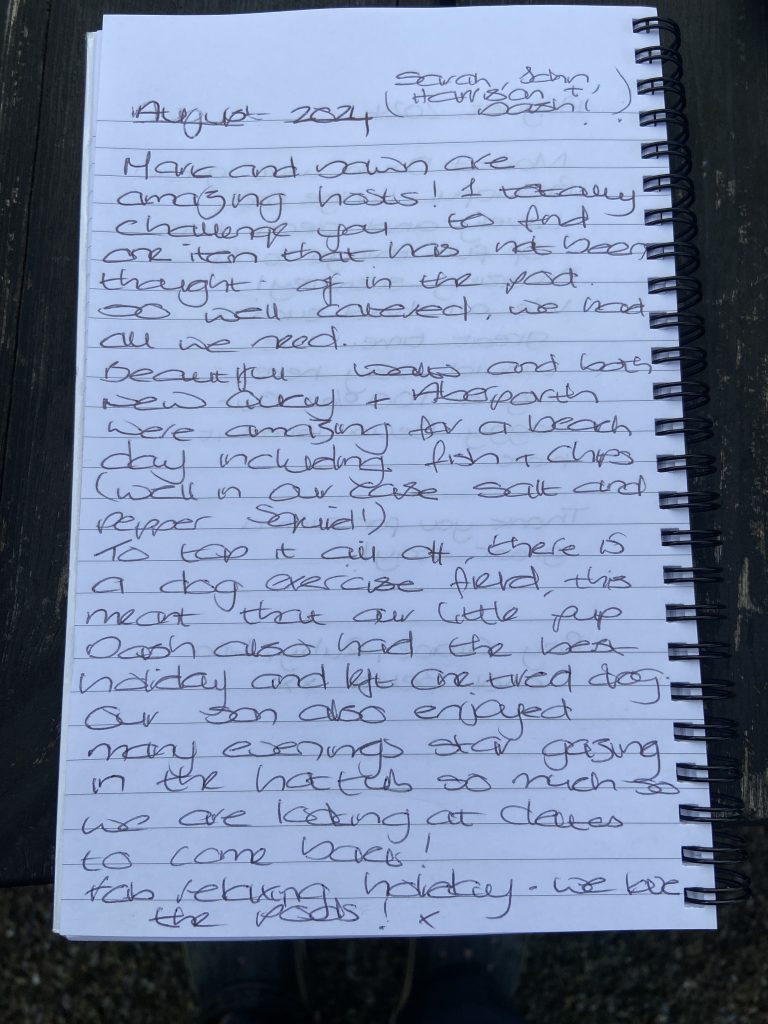 Sarah, John,
August 2024 (Harrison +
Dash!)
Mark and Dawn are
amazing hosts! I totally
challenge you to find
one item that has not been
thought of in the pod.
so well catered, we had
all we need.
Beautiful walks and both
New Quay + Aberporth
were amazing for a beach
day including fish + chips
(well in our case salt and
pepper squid!)
To top it all off, there is
a dog exercise field, this
meant that our little pup
Dash also had the best
holiday and left one tired dog.
Our son also enjoyed
many evenings star gazing
in the hot tub so much so
we are looking at dates
to come back!
fab relaxing holiday - we love
the pods! x